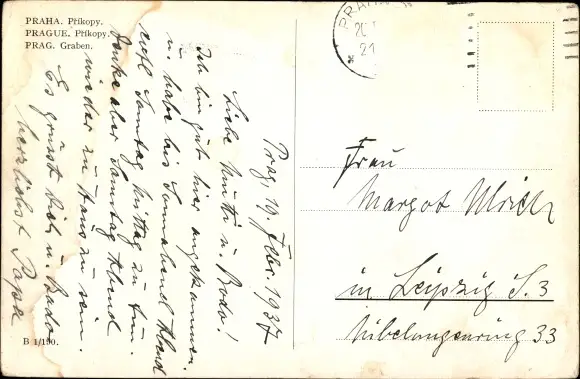 PRAHA. Příkopy.
PRAGUE. Příkopy.
PRAG. Graben.
PRAHA
20
21
Prag, 19. Febr. 1937
Liebe Mutti u. Bodo!
Ich bin gut hier angekommen
u. habe bis Sonnabend Abend
evtl Sonntag Mittag zu tun.
Denke aber Sonntag Abend
wieder zu Haus zu sein.
Es grüsst Dich u. Bodo
herzlichst Papa
B 1/190.
Frau
Margot Ulrich
in Leipzig S. 3
Nibelungenring 33